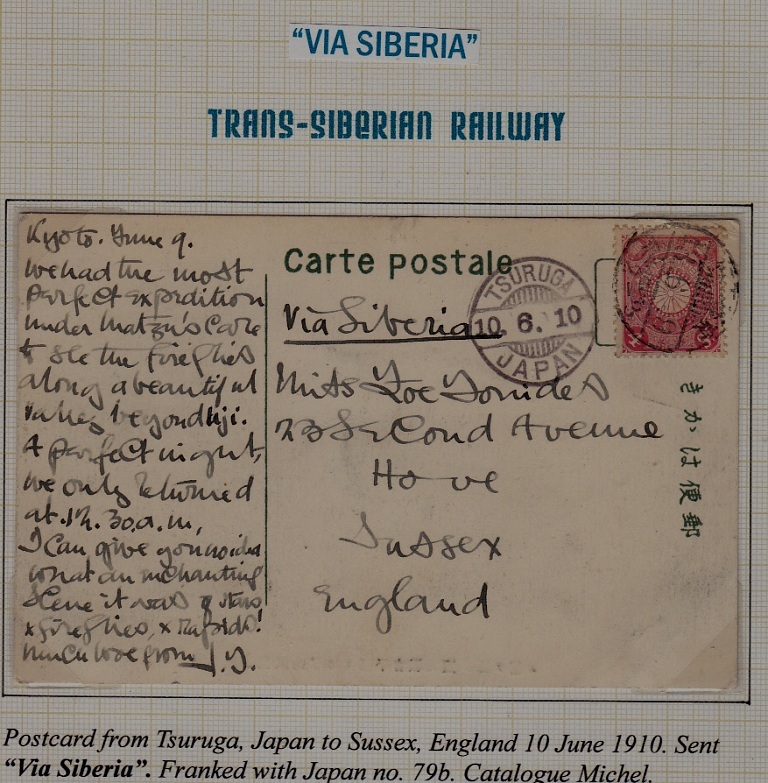 “VIA SIBERIA”
TRANS-SIBERIAN RAILWAY
Kyoto. June 9.
we had the most
perfect expedition
under Matzu's care
to see the fireflies
along a beautiful
valley beyond Uji.
A perfect night,
we only returned
at 12.30.a.m,
I can give you no idea
what an enchanting
scene it was of stars
x fireflies, x rapids!
much love from J.Y.
Carte postale
Via Siberia
TSURUGA
10. 6. 10
JAPAN
Miss Zoe Ionides
23 Second Avenue
Hove
Sussex
England
きかは便郵
Postcard from Tsuruga, Japan to Sussex, England 10 June 1910. Sent
“Via Siberia”. Franked with Japan no. 79b. Catalogue Michel.